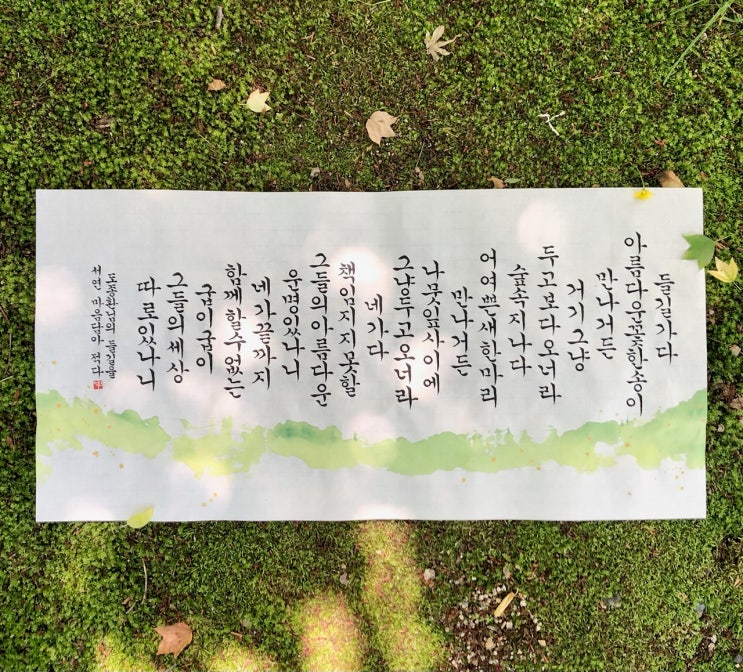 들길가다
아름다운꽃한송이
만나거든
거기그냥
두고보다오너라
숲속지나다
어여쁜새한마리
만나거든
나뭇잎사이에
그냥두고오너라
네가다
책임지지못할
그들의아름다운
운명있나니
네가끝까지
함께할수없는
굽이굽이
그들의세상
따로있나니
도종환님의 들길을
서연 마음담아 쓰다